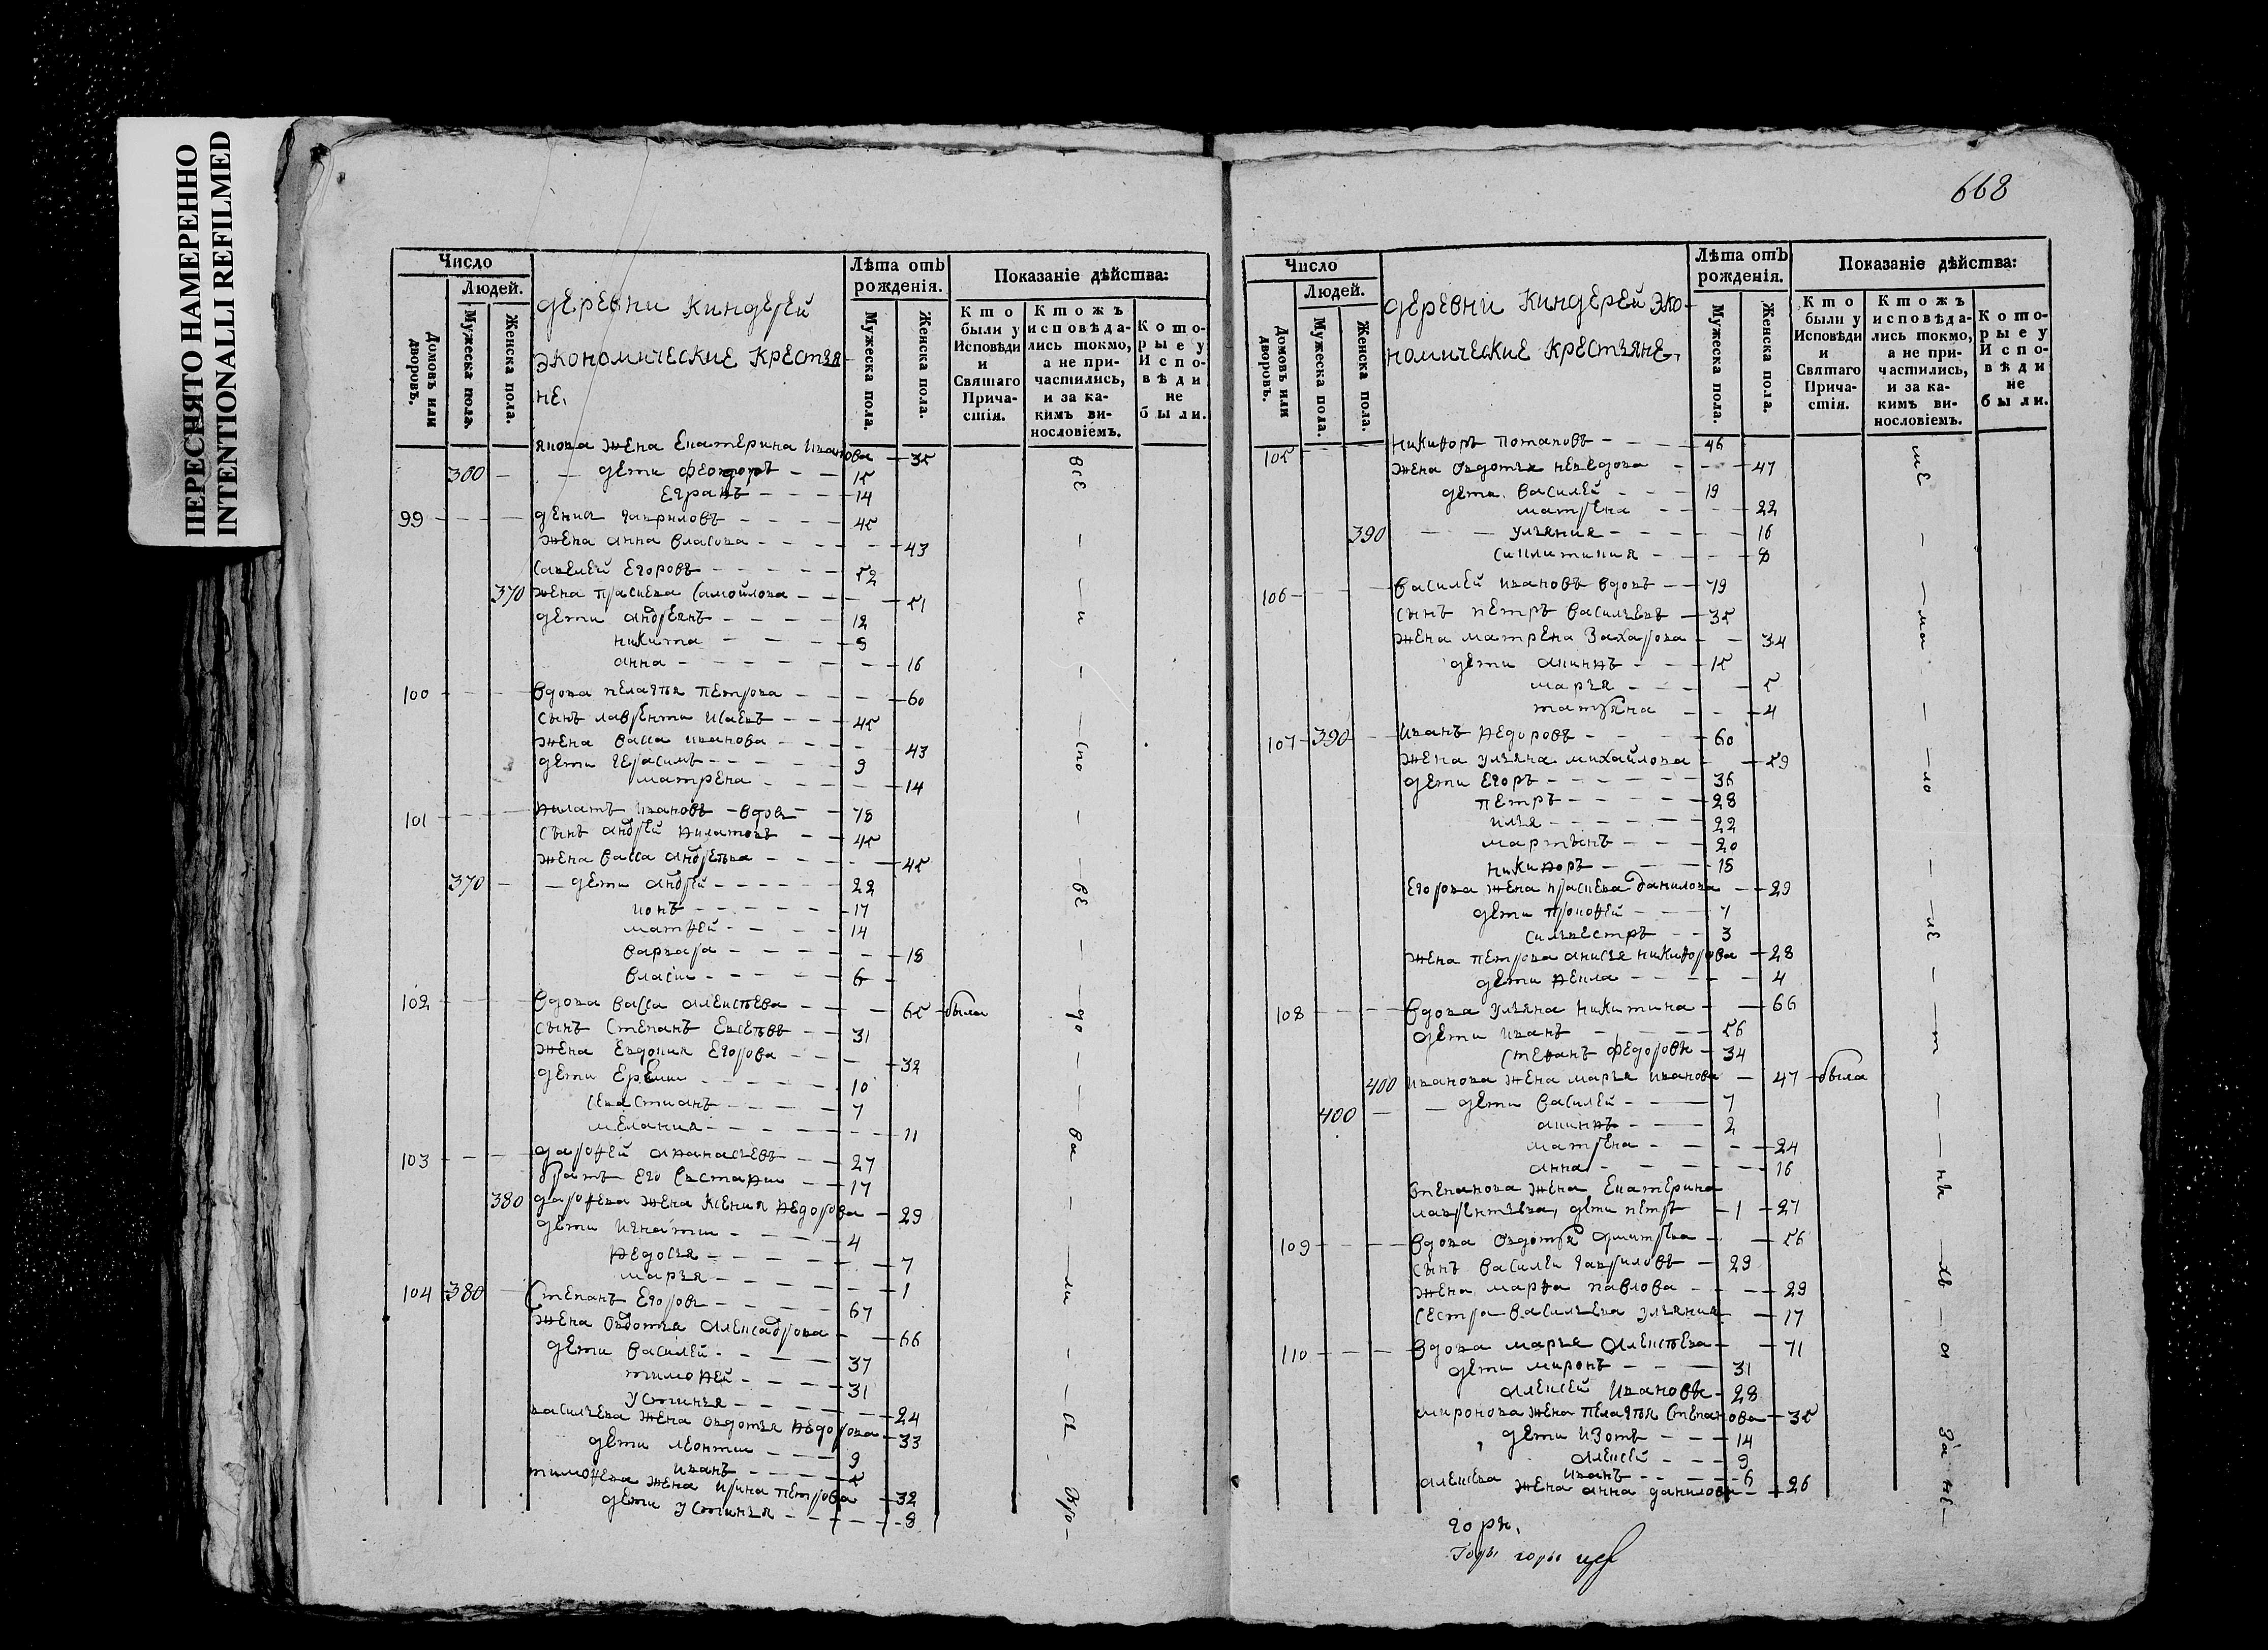 ПЕРЕСНЯТО НАМЕРЕННО
INTENTIONALLI REFILMED
Число
Людей.
Домовъ или дворовъ.
Мужеска пола.
Женска пола.
деревни Киндерей
экономические крестья-
не.
Лѣта отъ рожденія.
Мужеска пола.
Женска пола.
Показаніе дѣйства:
Кто были у Исповѣди и Святаго Причастія.
Ктожъ исповѣдались токмо, а не причастились, и за какимъ винословіемъ.
Которые у Исповѣди не были.
жена Екатерина Иванова - 35
360 - дети Феодоръ - 15
14
99 - Гавриловъ - 45
жена анна власова - 43
савелей Егоровъ - 52
370 жена прасковa самойлова - 51
дети андреянъ - 12
никита - 9
анна - 16
100 - вдова пелагея петрова - 60
сынъ лаврентии исаевъ - 45
жена васса иванова - 43
дети герасимъ - 9
матрена - 14
101 - ѳилатъ ивановъ - вдовъ - 78
сынъ андрей ѳилатовъ - 45
жена васса андреева - 45
370 - дети андрей - 22
ионъ - 17
матѳей - 14
варвара - 18
власии - 6
102 - вдова васса алексеева - 65 - была
сынъ степанъ евсеевъ - 31
жена евдокия егорова - 32
дети - 10
севастианъ - 7
мелания - 11
103 - дороѳей аѳанасьевъ - 27
братъ его - 17
380 дороѳева жена ксения ѳедорова - 29
дети игнатии - 4
ѳедосья - 7
марья - 1
104 - 380 - степанъ егоровъ - 67
жена овдотья - 66
дети василей - 37
тимоѳей - 31
устинья - 24
васильева жена овдотья ѳедорова - 33
дети леонтии - 9
иванъ - 5
тимоѳеева жена ирина петрова - 32
дети устинья - 8
668
Число
Людей.
Домовъ или дворовъ.
Мужеска пола.
Женска пола.
деревни Киндерей эко-
номические крестьяне.
Лѣта отъ рожденія.
Мужеска пола.
Женска пола.
Показаніе дѣйства:
Кто были у Исповѣди и Святаго Причастія.
Ктожъ исповѣдались токмо, а не причастились, и за какимъ винословіемъ.
Которые у Исповѣди не были.
105 никиѳоръ потаповъ - 46
жена овдотья - 47
дети василей - 19
матрена - 22
390 - ульяния - 16
- 8
106 - василей ивановъ вдовъ - 79
сынъ петръ васильевъ - 35
жена матрена захарова - 34
дети - 15
марья - 5
татьяна - 4
107 - 390 - иванъ ѳедоровъ - 60
жена ульяна михайлова - 59
дети егоръ - 36
петръ - 28
илья - 22
мартынъ - 20
никиѳоръ - 18
егорова жена данилова - 29
дети - 7
сильвестръ - 3
жена петрова анисья никиѳорова - 28
дети ѳекла - 4
108 - вдова ульяна никитина - 66
дети иванъ - 56
степанъ федоровы - 34
400 иванова жена марья иванова - 47 - была
400 - дети василей - 7
- 2
матрена - 24
анна - 16
степанова жена екатерина
лаврентьева, дети петръ - 1 - 27
109 - вдова овдотья дмитрева - 56
сынъ василеи гавриловъ - 29
жена марѳа павлова - 29
сестра васильева ульяния - 17
110 - вдова марья алексеева - 71
дети миронъ - 31
алексей ивановы - 28
миронова жена пелагея степанова - 35
дети изотъ - 14
алексей - 9
иванъ - 6
алексеева жена анна данилова - 26